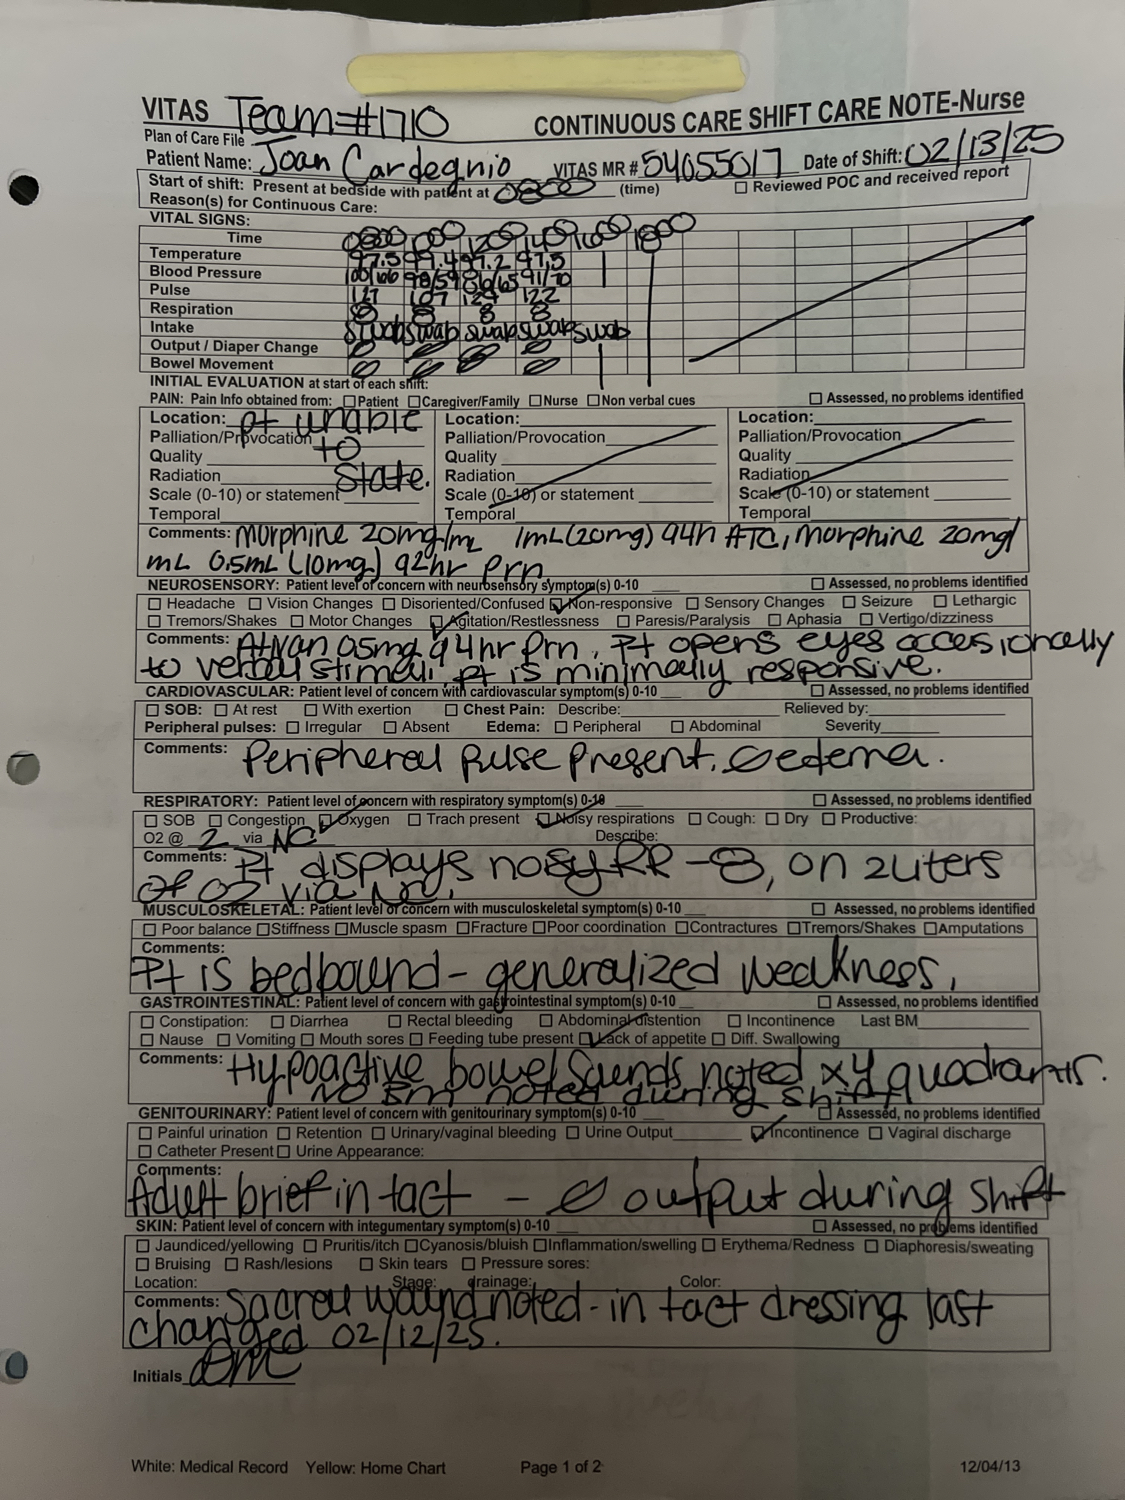 VITAS Team #1710
CONTINUOUS CARE SHIFT CARE NOTE-Nurse
Plan of Care File
Patient Name: Joan Cardegnio VITAS MR # 54055017 Date of Shift: 02/13/25
Start of shift: Present at bedside with patient at 0800 (time) ☐ Reviewed POC and received report
Reason(s) for Continuous Care:
VITAL SIGNS:
Time 0800 1000 1200 1400 1600 1800
Temperature 97.5 99.4 97.2 97.5
Blood Pressure 98/59 86/65 91/70
Pulse 127 107 124 122
Respiration 8 8 8 8
Intake swab swab swab swab swab
Output / Diaper Change ∅ ∅ ∅ ∅
Bowel Movement ∅ ∅ ∅ ∅
INITIAL EVALUATION at start of each shift:
PAIN: Pain Info obtained from: ☐ Patient ☐ Caregiver/Family ☐ Nurse ☐ Non verbal cues ☐ Assessed, no problems identified
Location: pt unable Location: Location:
Palliation/Provocation to Palliation/Provocation Palliation/Provocation
Quality Quality Quality
Radiation state. Radiation Radiation
Scale (0-10) or statement Scale (0-10) or statement Scale (0-10) or statement
Temporal Temporal Temporal
Comments: morphine 20mg/mL 1mL (20mg) q4h ATC, morphine 20mg/
mL 0.5mL (10mg) q2hr prn
NEUROSENSORY: Patient level of concern with neurosensory symptom(s) 0-10 ☐ Assessed, no problems identified
☐ Headache ☐ Vision Changes ☐ Disoriented/Confused ☑ Non-responsive ☐ Sensory Changes ☐ Seizure ☐ Lethargic
☐ Tremors/Shakes ☐ Motor Changes ☑ Agitation/Restlessness ☐ Paresis/Paralysis ☐ Aphasia ☐ Vertigo/dizziness
Comments: Ativan 0.5mg q4hr prn. Pt opens eyes accesionally
to verbal stimuli, pt is minimally responsive.
CARDIOVASCULAR: Patient level of concern with cardiovascular symptom(s) 0-10 ☐ Assessed, no problems identified
☐ SOB: ☐ At rest ☐ With exertion ☐ Chest Pain: Describe: Relieved by:
Peripheral pulses: ☐ Irregular ☐ Absent Edema: ☐ Peripheral ☐ Abdominal Severity
Comments: Peripheral Pulse present. ∅ edema.
RESPIRATORY: Patient level of concern with respiratory symptom(s) 0-10 ☐ Assessed, no problems identified
☐ SOB ☐ Congestion ☑ Oxygen ☐ Trach present ☑ Noisy respirations ☐ Cough: ☐ Dry ☐ Productive:
O2 @ 2 via NC Describe:
Comments: Pt displays nosy RR - 8, on 2 liters
of O2 via NC.
MUSCULOSKELETAL: Patient level of concern with musculoskeletal symptom(s) 0-10 ☐ Assessed, no problems identified
☐ Poor balance ☐ Stiffness ☐ Muscle spasm ☐ Fracture ☐ Poor coordination ☐ Contractures ☐ Tremors/Shakes ☐ Amputations
Comments:
Pt is bedbound - generalized weakness,
GASTROINTESTINAL: Patient level of concern with gastrointestinal symptom(s) 0-10 ☐ Assessed, no problems identified
☐ Constipation: ☐ Diarrhea ☐ Rectal bleeding ☐ Abdominal distention ☐ Incontinence Last BM
☐ Nause ☐ Vomiting ☐ Mouth sores ☐ Feeding tube present ☑ Lack of appetite ☐ Diff. Swallowing
Comments: Hypoactive bowel sounds noted x4 quadrants.
NO BM noted during shift
GENITOURINARY: Patient level of concern with genitourinary symptom(s) 0-10 ☐ Assessed, no problems identified
☐ Painful urination ☐ Retention ☐ Urinary/vaginal bleeding ☐ Urine Output ☑ Incontinence ☐ Vaginal discharge
☐ Catheter Present ☐ Urine Appearance:
Comments:
Adult brief in tact - ∅ output during shift
SKIN: Patient level of concern with integumentary symptom(s) 0-10 ☐ Assessed, no problems identified
☐ Jaundiced/yellowing ☐ Pruritis/itch ☐ Cyanosis/bluish ☐ Inflammation/swelling ☐ Erythema/Redness ☐ Diaphoresis/sweating
☐ Bruising ☐ Rash/lesions ☐ Skin tears ☐ Pressure sores:
Location: Stage: drainage: Color:
Comments: Sacral wound noted - in tact dressing last
changed 02/12/25.
Initials
White: Medical Record Yellow: Home Chart Page 1 of 2 12/04/13